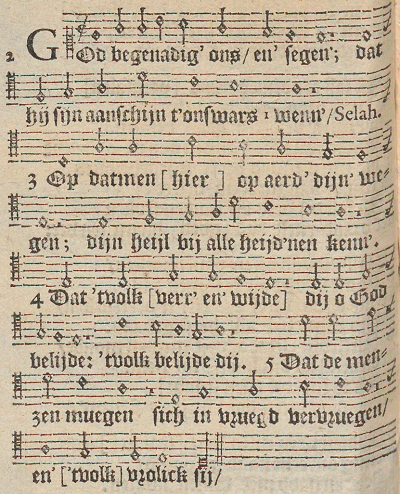 2 GOd begenadig' ons/ en' segen'; dat
hij sijn aanschijn t'onswars : wenn'/Selah.
3 Op datmen [hier ] op aerd' dijn' we-
gen; dijn heijl bij alle heijd'nen kenn'.
4 Dat 'tvolk [verr' en' wijde] dij o God
belijde: 'tvolk belijde dij. 5 Dat de men-
zen muegen sich in vruegd vervruegen/
en' ['tvolk] vrolick sij/